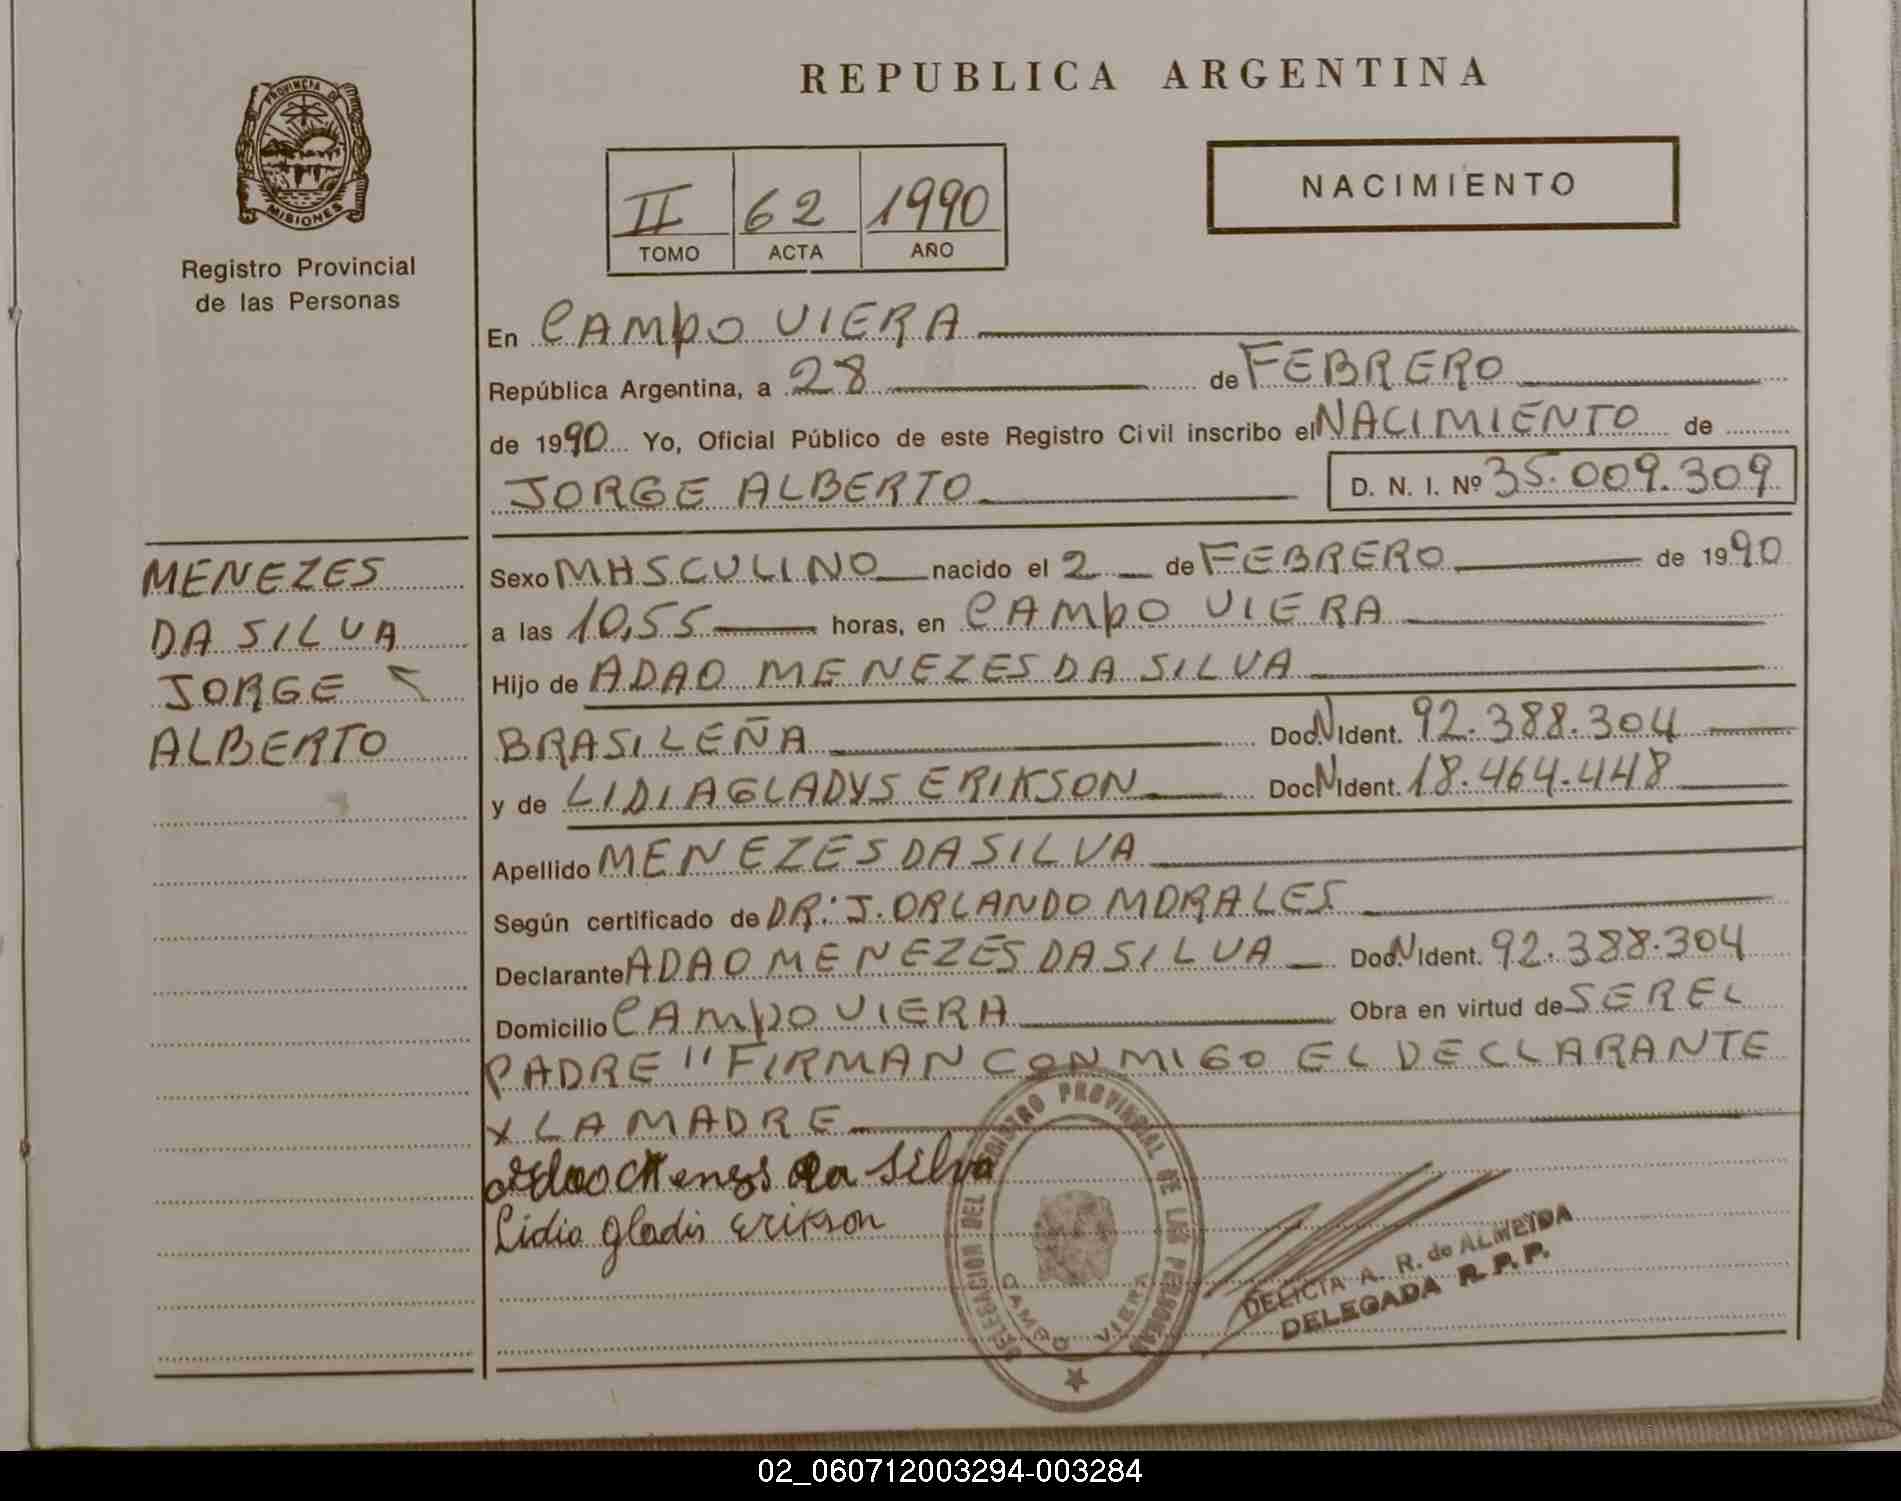 REPUBLICA ARGENTINA
PROVINCIA DE
MISIONES
Registro Provincial
de las Personas
II 62 1990
TOMO ACTA AÑO
NACIMIENTO
En CAMPO VIERA
República Argentina, a 28 de FEBRERO
de 1990 Yo, Oficial Público de este Registro Civil inscribo el NACIMIENTO de
JORGE ALBERTO D. N. I. Nº 35.009.309
MENEZES
DA SILVA
JORGE
ALBERTO
Sexo MASCULINO nacido el 2 de FEBRERO de 1990
a las 10,55 horas, en CAMPO VIERA
Hijo de ADAO MENEZES DA SILVA
BRASILEÑA Doc.N Ident. 92.388.304
y de LIDIA GLADYS ERIKSON Doc.N Ident. 18.464.448
Apellido MENEZES DA SILVA
Según certificado de DR: J. ORLANDO MORALES
Declarante ADAO MENEZES DA SILVA Doc.N Ident. 92.388.304
Domicilio CAMPO VIERA Obra en virtud de SER EL
PADRE " FIRMAN CONMIGO EL DECLARANTE
Y LA MADRE
Adao Menezs da Silva
Lidia Gladis Erikson
DELEGACION DEL REGISTRO PROVINCIAL DE LAS PERSONAS
CAMPO VIERA
DELICIA A. R. de ALMEYDA
DELEGADA R. P. P.
02_060712003294-003284